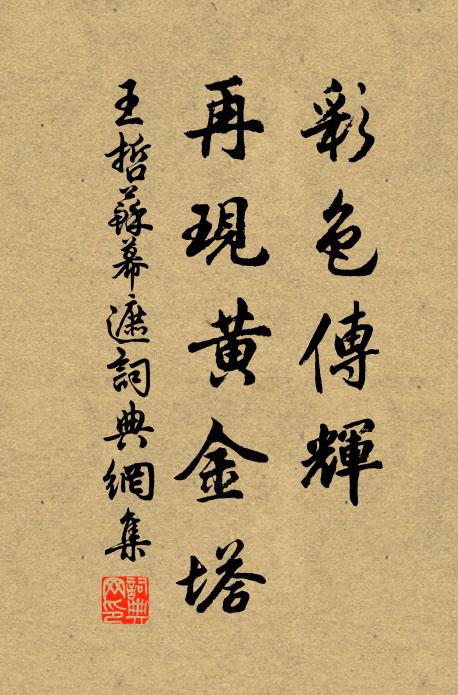 彩色傳輝
再現黃金塔
王哲蘇幕遮詞典網集
詞典网印